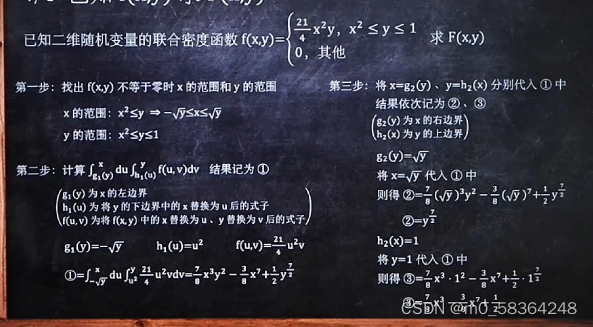 已知二维随机变量的联合密度函数 f(x,y)={21/4 x²y, x² ≤ y ≤ 1
0, 其他
求 F(x,y)
第一步：找出 f(x,y) 不等于零时 x 的范围和 y 的范围
x 的范围: x²≤y ⇒ -√y≤x≤√y
y 的范围: x²≤y≤1
第二步：计算 ∫_{g₁(y)}^{x} du ∫_{h₁(u)}^{y} f(u,v)dv 结果记为 ①
g₁(y) 为 x 的左边界
h₁(u) 为将 y 的下边界中的 x 替换为 u 后的式子
f(u,v) 为将 f(x,y) 中的 x 替换为 u、y 替换为 v 后的式子
g₁(y)=-√y h₁(u)=u² f(u,v)=21/4 u²v
①=∫_{-√y}^{x} du ∫_{u²}^{y} 21/4 u²vdv=7/8 x³y² - 3/8 x⁷+1/2 y^{7/2}
第三步：将 x=g₂(y) 、y=h₂(x) 分别代入 ① 中
结果依次记为 ②、③
g₂(y) 为 x 的右边界
h₂(x) 为 y 的上边界
g₂(y)=√y
将 x=√y 代入 ① 中
则得 ②=7/8 (√y)³y² - 3/8 (√y)⁷+1/2 y^{7/2}
②=y^{7/2}
h₂(x)=1
将 y=1 代入 ① 中
则得 ③=7/8 x³ · 1² - 3/8 x⁷+1/2 · 1^{7/2}
③=7/8 x³ - 3/8 x⁷+1/2
CSDN @m0_58364248